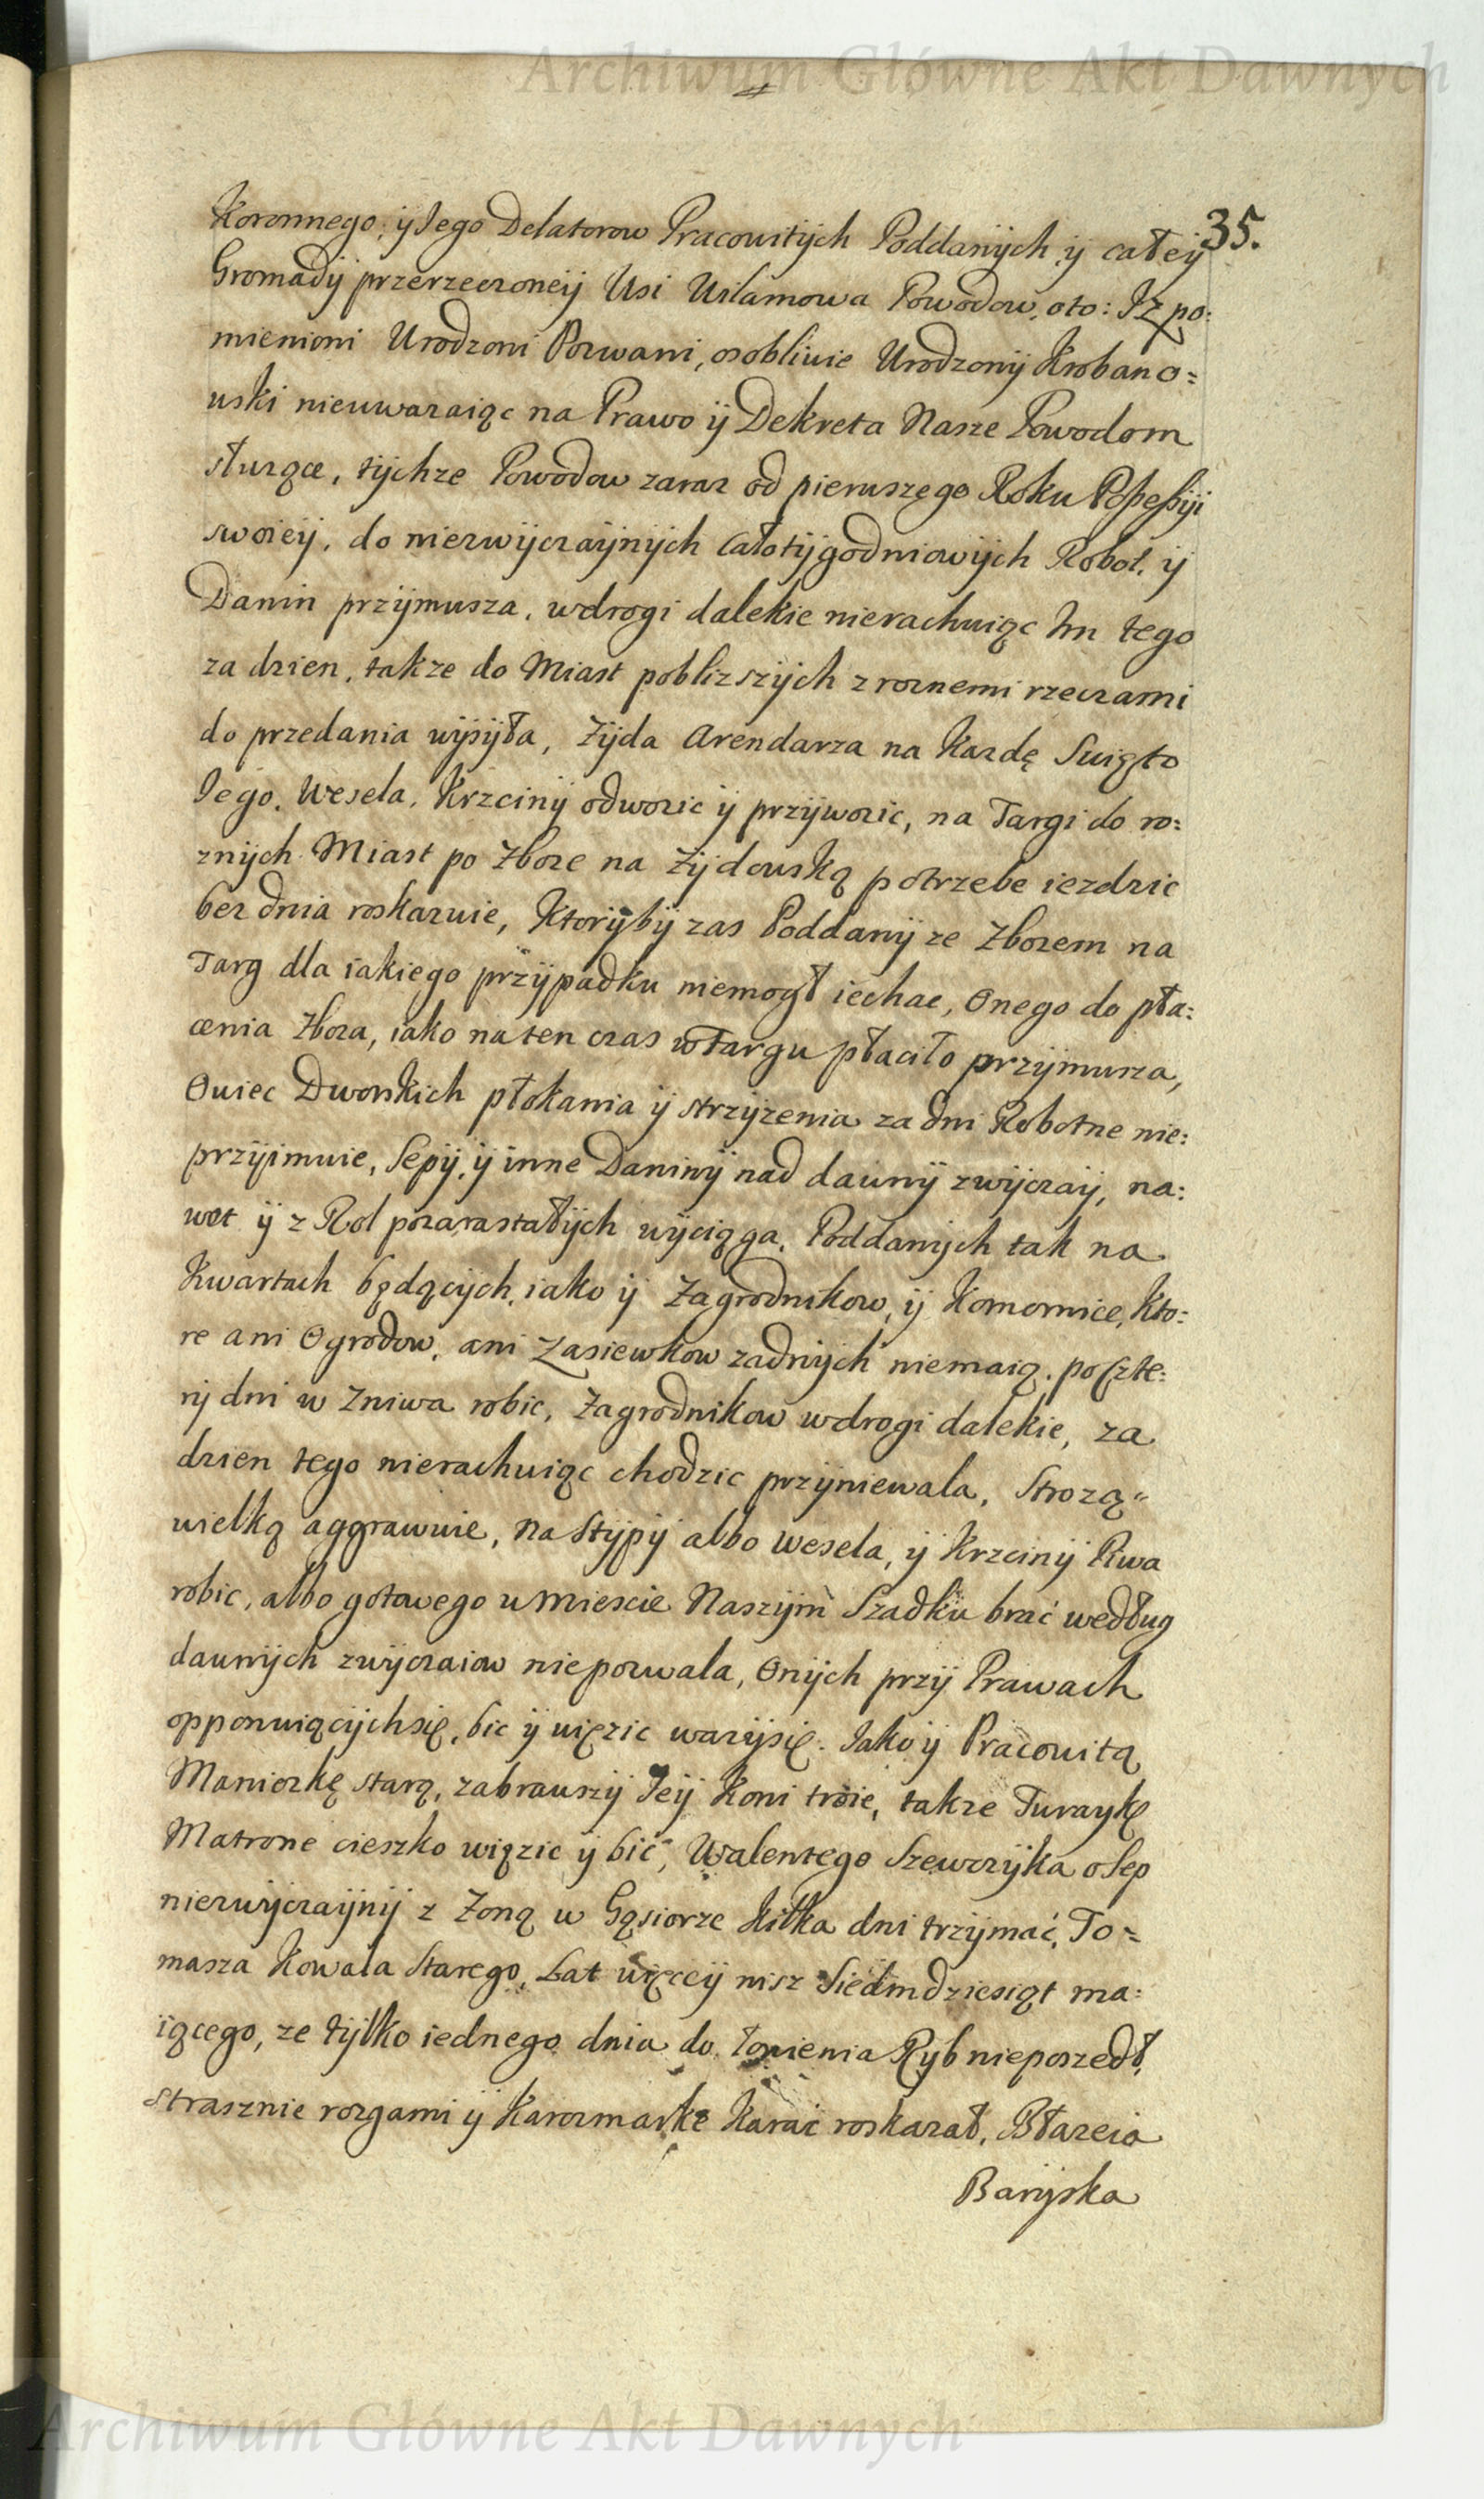 Archiwum Główne Akt Dawnych
35.
Koronnego, ÿ Jego Delatorow Pracowitÿch Poddanÿch ÿ całeÿ
Gromadÿ przerzeczoneÿ Wsi Wilamowa Powodow, oto: Iz po:
mienioni Urodzoni Pozwani, osobliwie Urodzonÿ Krobano=
wski nieuwazaiąc na Prawo ÿ Dekreta Nasze Powodom
słuzące, tÿchze Powodow zaraz od pierwszego Roku Possessÿi
swoieÿ, do niezwÿczaÿnÿch Całotÿgodniowÿch Robot, ÿ
Danin przÿmusza, w drogi dalekie nierachuiąc Im tego
za dzien, takze do Miast poblizszÿch z roznemi rzeczami
do przedania wÿsÿła, Zÿda Arendarza na Kazdę Swięto
Jego, Wesela, Krzcinÿ odwozic ÿ przÿwozic, na Targi do ro:
znÿch Miast po Zboze na Zÿdowską potrzebe iezdzic
bez dnia roskazuie, Ktorÿbÿ zas Poddanÿ ze Zbozem na
Targ dla iakiego przÿpadku niemogł iechac, Onego do pła:
cenia Zboza, iako na ten czas w Targu płaciło przÿmusza,
Owiec Dworskich płokania ÿ strzÿzenia za dni Robotne nie:
przÿimuie, Sepÿ, ÿ inne Daninÿ nad dawnÿ zwÿczaÿ, na:
wet ÿ z Rol pozarastałÿch wÿciąga, Poddanÿch tak na
Kwartach będącÿch, iako ÿ Zagrodnikow, ÿ Komornice, Kto:
re ani Ogrodow, ani Zasiewkow zadnÿch niemaią, po Czte:
rÿ dni w Zniwa robic, Zagrodnikow w drogi dalekie, za
dzien tego nierachuiąc chodzic przÿniewala, Strozą"
wielką aggrawuie, na Stÿpÿ albo Wesela, ÿ Krzcinÿ Piwa
robic, albo gotowego w Miescie Naszÿm Szadku brać według
dawnÿch zwÿczaiow niepozwala, Onÿch przÿ Prawach
opponuiącÿch się, bic ÿ więzic wazÿ się. Jako ÿ Pracowitą
Maniozkę starą, zabrawszÿ Jeÿ Koni troie, takze Turaÿkę
Matrone cieszko więzic ÿ bić, Walentego Szewczÿka o Sep
niezwÿczaÿnÿ z Zoną w Gąsiorze kilka dni trzÿmać, To=
masza Kowala Starego, Lat więceÿ nisz Siedmdziesiąt ma:
iącego, ze tÿlko iednego dnia do łowienia Rÿb nieposzedł,
strasznie rozgami ÿ Karozmaske Karać roskazał, Błazeia
Barÿska
Archiwum Główne Akt Dawnych